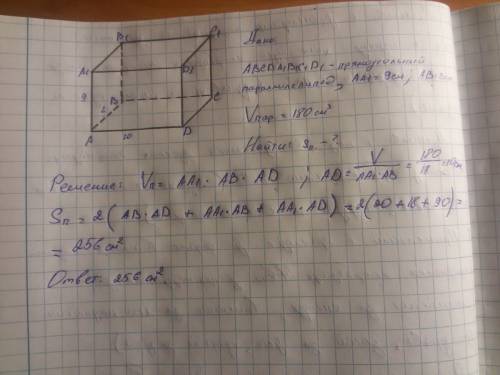 B₁ C₁
A₁ D₁
9
2 B C
A 10 D
Дано:
ABCDA₁B₁C₁D₁ - прямоугольный
параллелепипед, AA₁ = 9см, AB = 2см
Vпар = 180 см³
Найти: Sп - ?
Решение: Vп = AA₁ · AB · AD, AD = V/(AA₁·AB) = 180/18 = 10см
Sп = 2(AB·AD + AA₁·AB + AA₁·AD) = 2(20+18+90) =
= 256 см²
Ответ: 256 см².